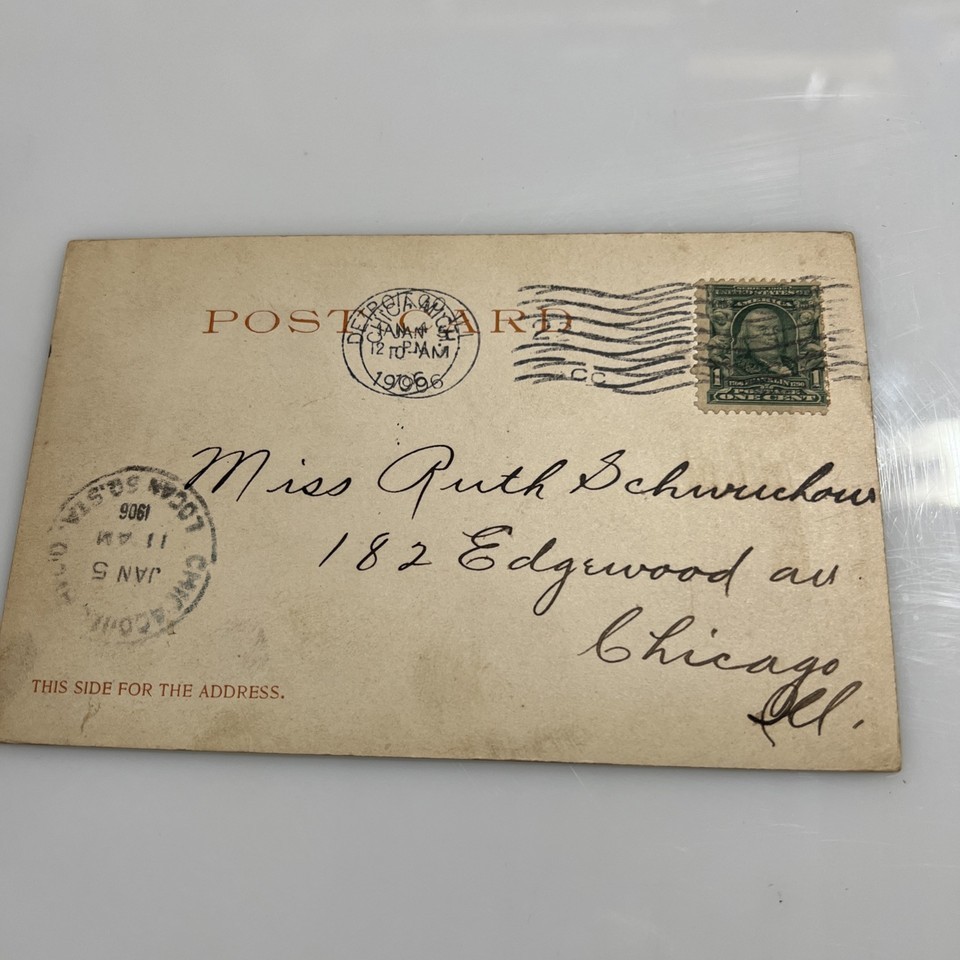 POST CARD
DETROIT, MICH.
JAN 4
12 PM
1906
CHICAGO, ILL.
JAN 5
10 AM
1906
CC
UNITED STATES
AMERICA
1 FRANKLIN 1
POSTAGE
ONE CENT
Miss Ruth
182 Edgewood av
Chicago
Ill.
LOGAN SQ. STA.
1906
11 AM
JAN 5
CHICAGO, ILL.
THIS SIDE FOR THE ADDRESS.